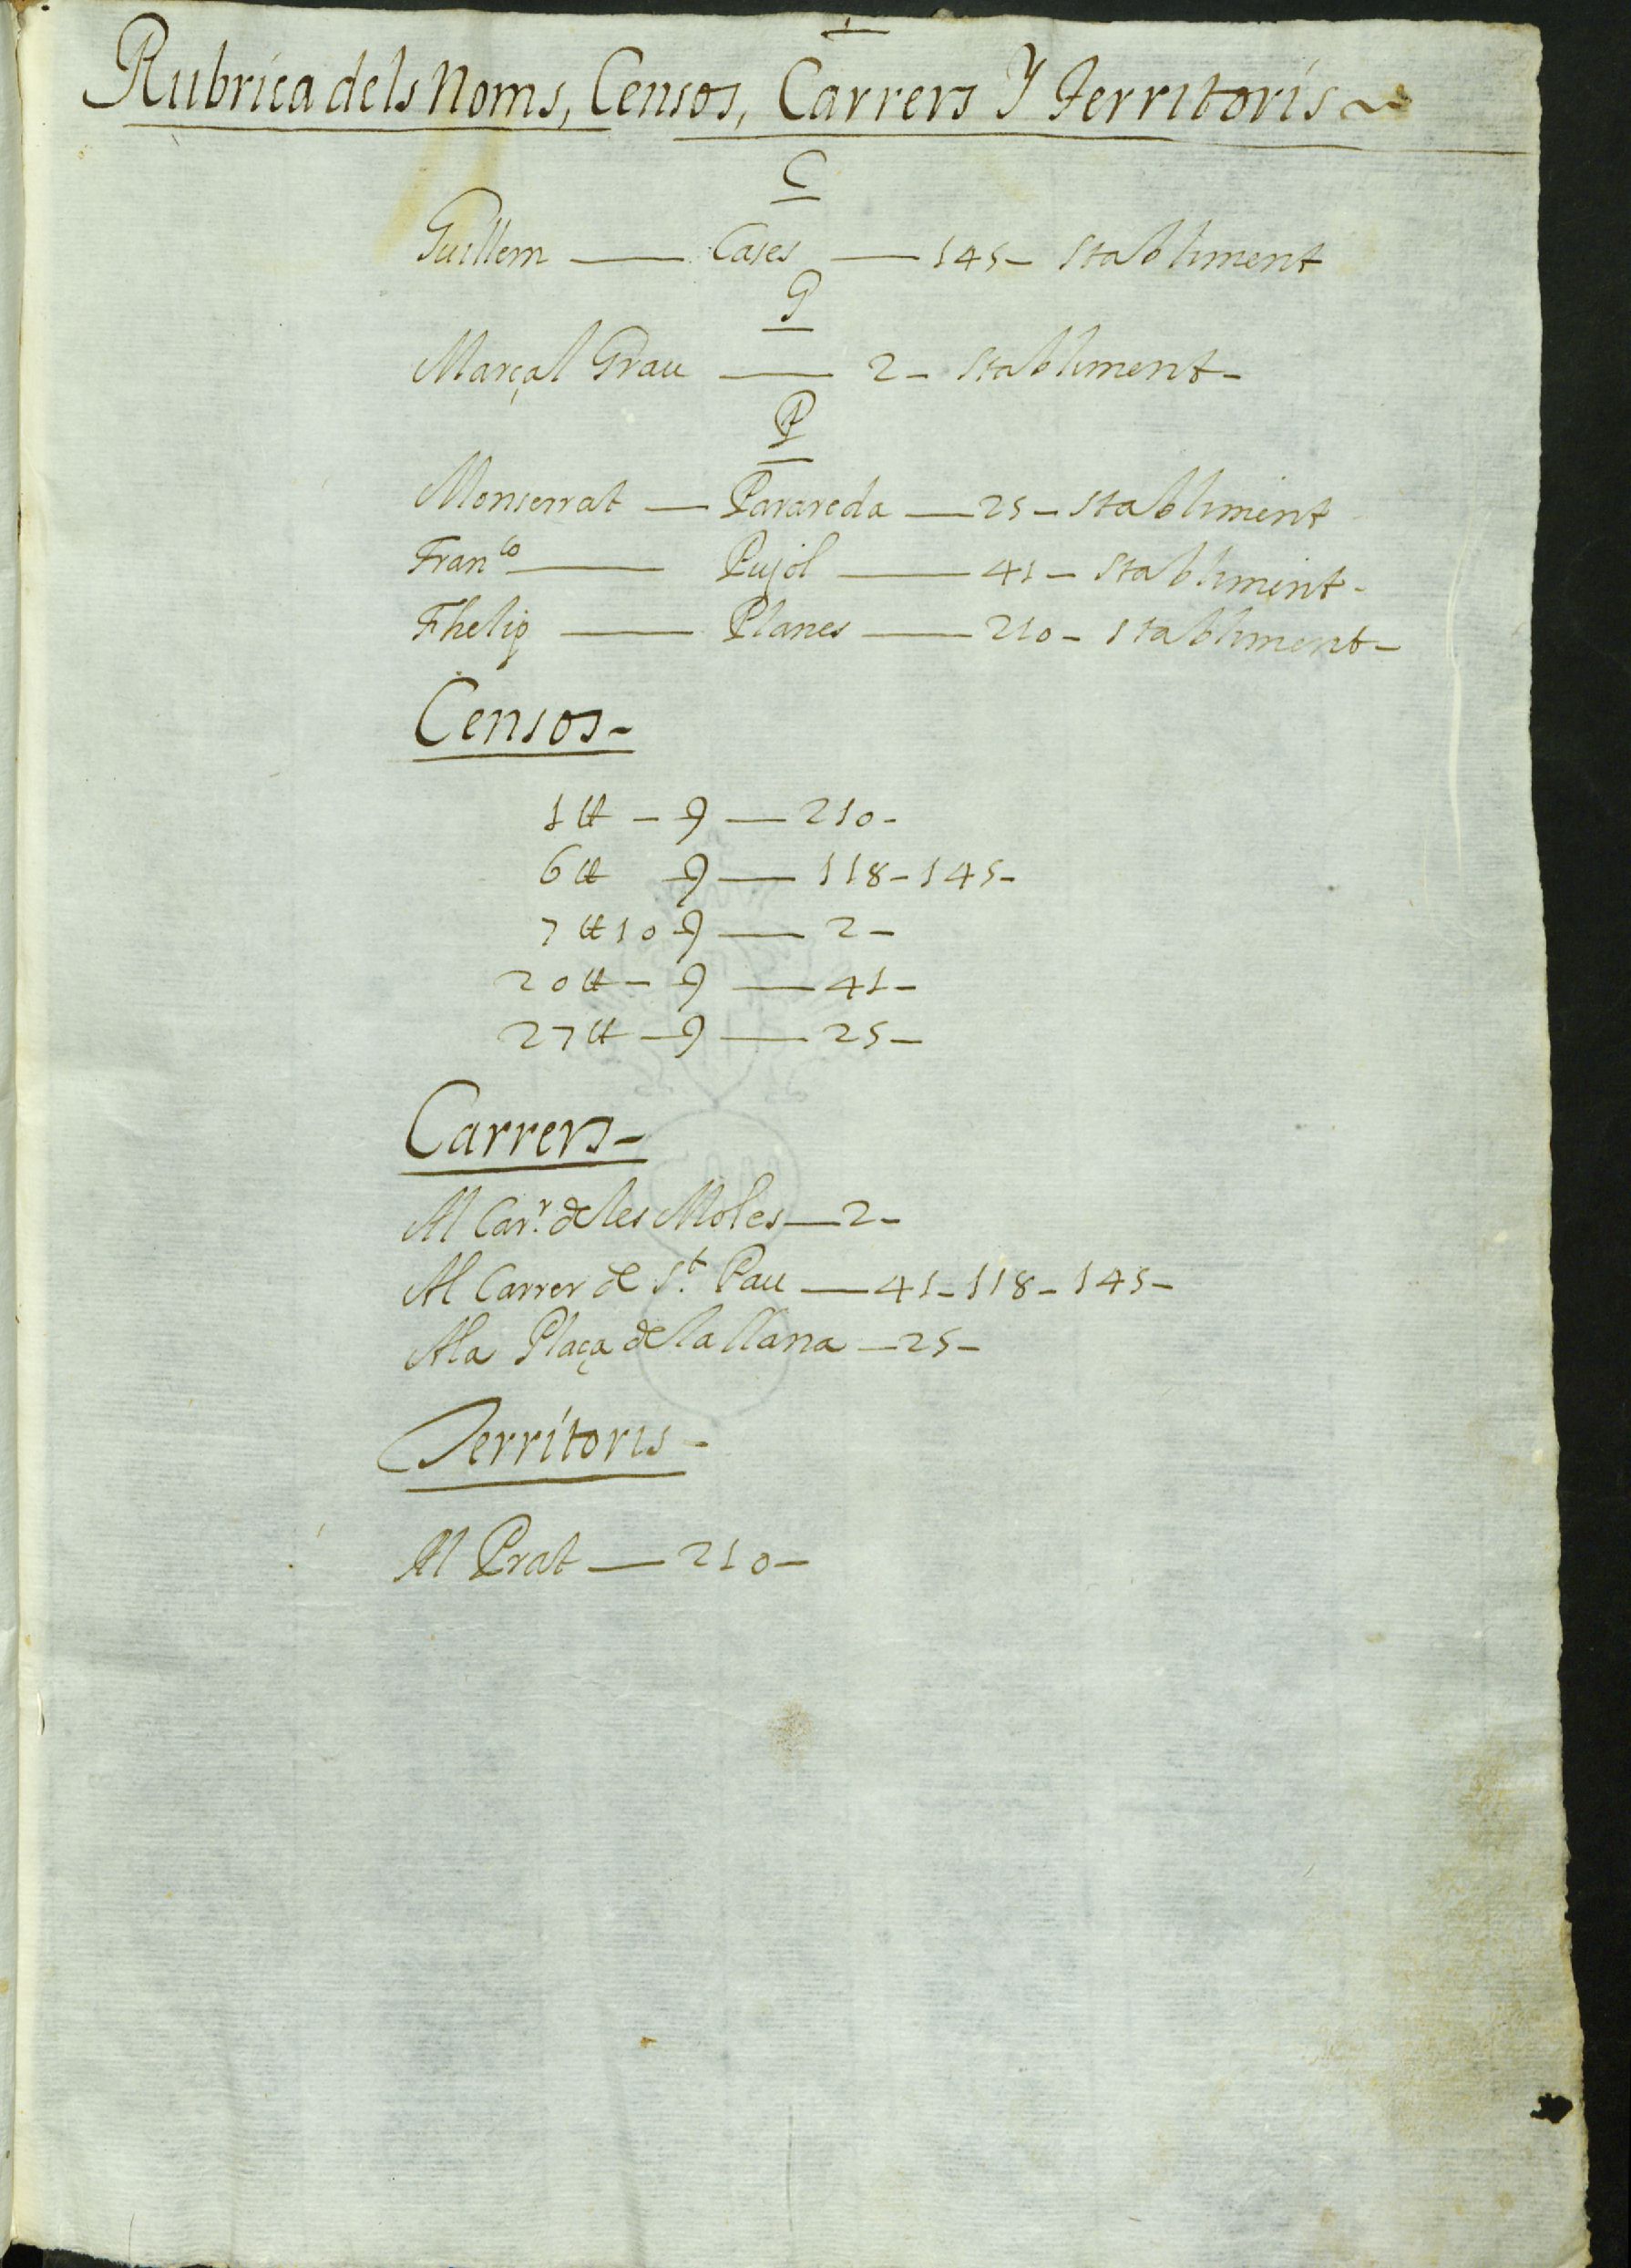 Rubrica dels Noms, Censos, Carrers Y Territoris ~
C
Guillem — Cases — 145 - Stabliment
G
Marçal Grau — 2 - Stabliment -
P
Monserrat — Parareda — 25 - Stabliment
Franco — Pujol — 41 - Stabliment -
Fhelip — Planes — 210 - Stabliment -
Censos -
1 ₶ - 9 — 210 -
6 ₶ 9 — 118 - 145 -
7 ₶ 10 9 — 2 -
20 ₶ - 9 — 41 -
27 ₶ - 9 — 25 -
Carrers -
Al Carr. de les Moles — 2 -
Al Carrer de St. Pau — 41 - 118 - 145 -
Ala Plaça de la llana — 25 -
Territoris -
Al Prat — 210 -